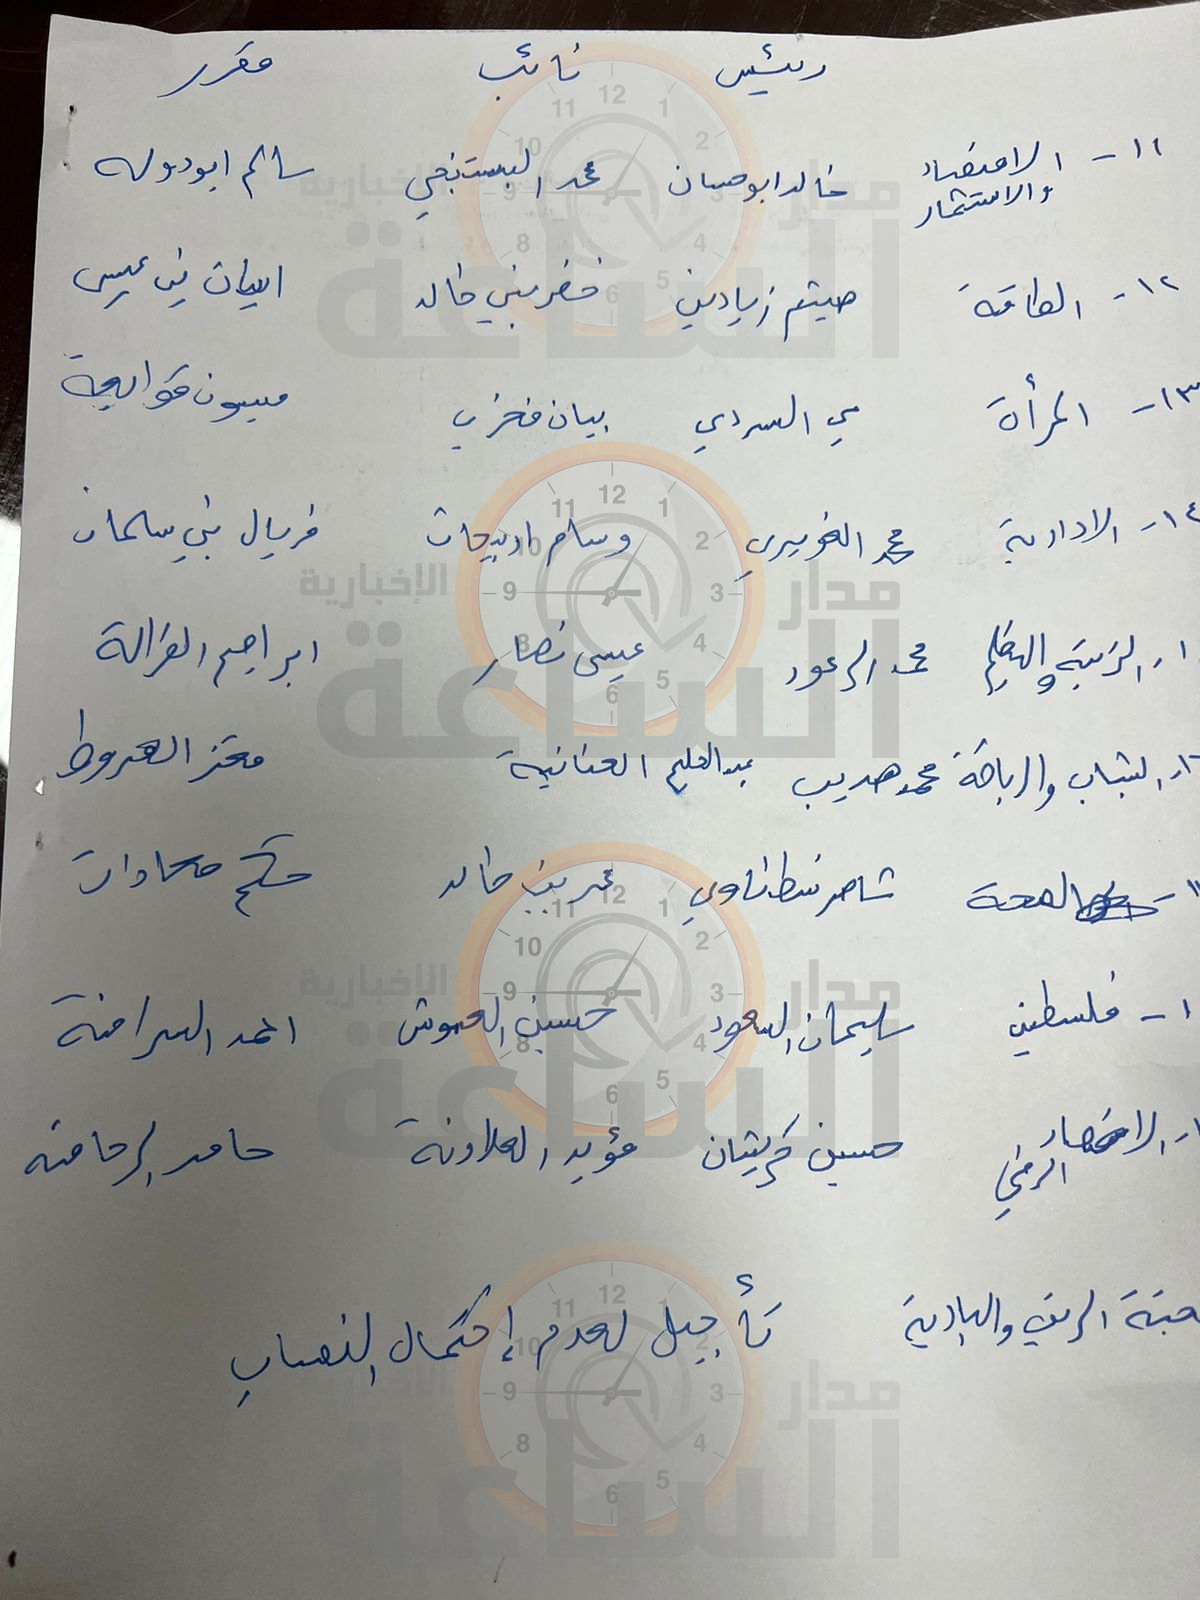 رئيس نائب مقرر
١١- الاقتصاد والاستثمار خالد ابوحسان محمد البستنجي سالم ابودوله
١٢- الطاقة هيثم زيادين خضر بني خالد ايمان بني عيسى
١٣- المرأة مي السردي بيان فخري ميسون قوابعة
١٤- الادارية محمد الغويري وسام اربيحات فريال بني سلمان
١- التربية والتعليم محمد الرعود عيسى نصار ابراهيم الغرالة
١- الشباب والرياضة محمد هديب عبدالحليم العنانبة معتز الهروط
١- الصحة شاهر شطناوي بني خالد حكم معادات
١- فلسطين سليمان السعود حسين العموش احمد السراحنة
١- الاقتصاد الرقمي حسين كريشان مؤيد العلاونة حامد الرحامنه
الريف والبادية تأجيل لعدم إكتمال النصاب
مدار
الساعة
الإخبارية